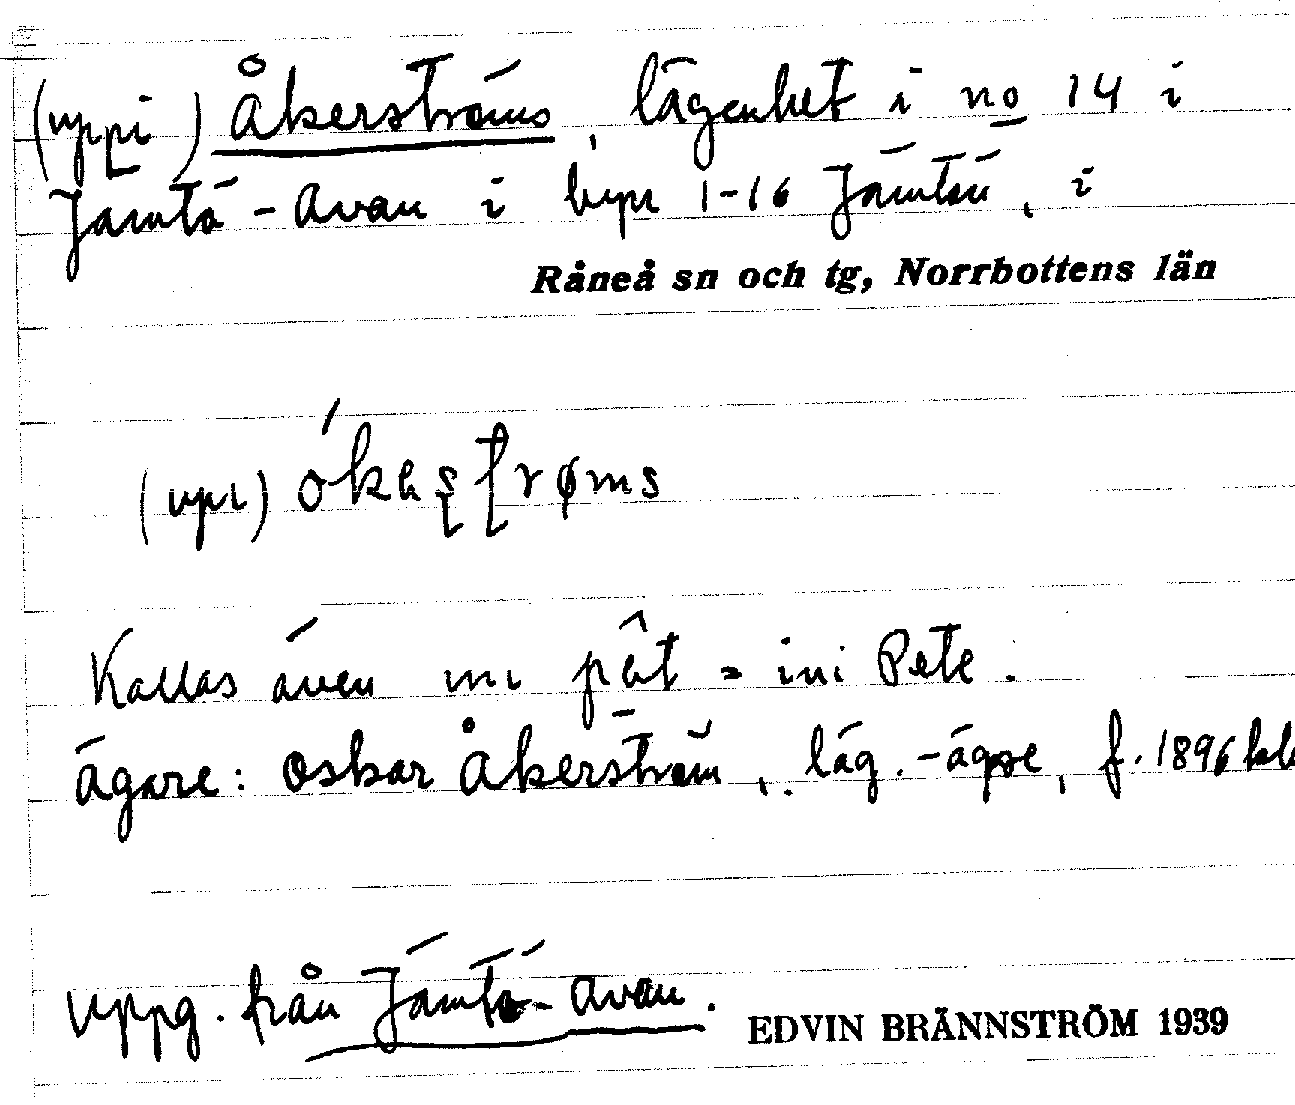 (uppi) Åkerströms, lägenhet i no 14 i
Jämtö-Avan i byn 1-16 Jämtön, i
Råneå sn och tg, Norrbottens län
Kallas även ini pêt = ini Pete.
ägare: Oskar Åkerström, läg.-ägare, f. 1896
Uppg. från Jämtö-Avan.
EDVIN BRÄNNSTRÖM 1939